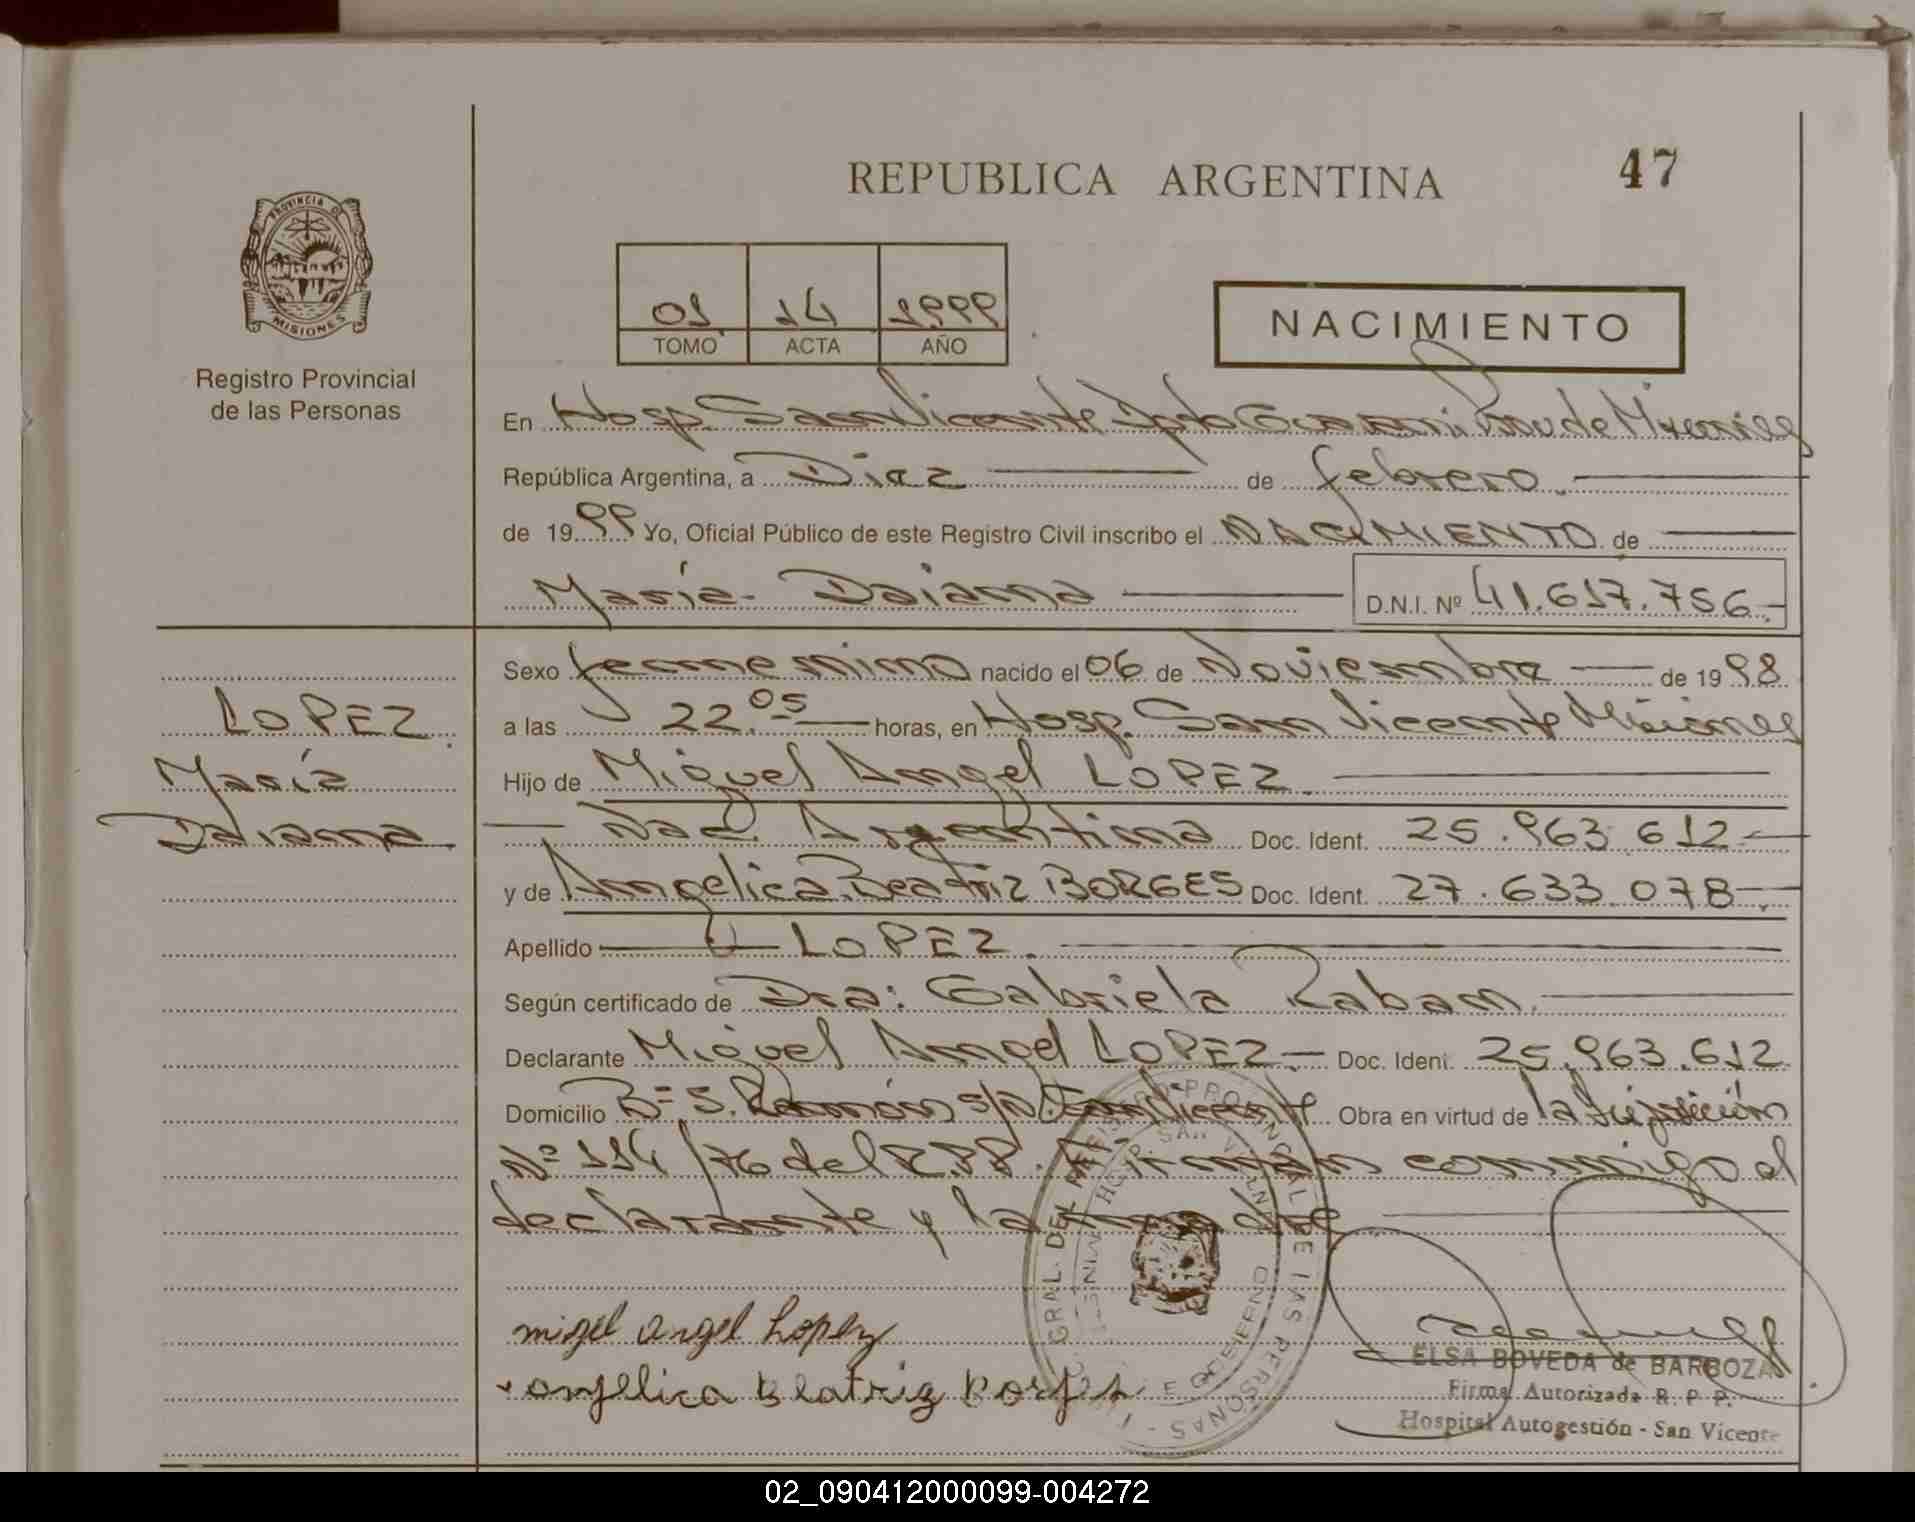 REPUBLICA ARGENTINA
47
PROVINCIA DE
MISIONES
Registro Provincial
de las Personas
01 14 1999
TOMO ACTA AÑO
NACIMIENTO
En Hosp. San Vicente Dpto Guaraní Prov de Misiones
República Argentina, a Diez de febrero.
de 1999 Yo, Oficial Público de este Registro Civil inscribo el NACIMIENTO de
María Daiana D.N.I. Nº 41.617.756
Sexo femenino nacido el 06 de Noviembre de 1998
LOPEZ
María
Daiana
a las 22.05 horas, en Hosp. San Vicente Misiones
Hijo de Miguel Angel LOPEZ.
Nac. Argentina Doc. Ident. 25.963.612
y de Angelica Beatriz BORGES Doc. Ident. 27.633.078
Apellido LOPEZ.
Según certificado de Dra: Gabriela Raban.
Declarante Miguel Angel LOPEZ. Doc. Ident. 25.963.612
Domicilio Bº S. Ramón s/n San Vicente Obra en virtud de la Disposición
Nº 114/76 del R.P.P. Firman conmigo el
declarante y la madre
GRAL. DEL REGISTRO PROVINCIAL DE LAS PERSONAS
HOSP. SAN
E GOBIERNO
migel angel Lopez
angelica Beatriz Borges
ELSA BOVEDA de BARBOZA
Firma Autorizada R. P. P.
Hospital Autogestión - San Vicente
02_090412000099-004272